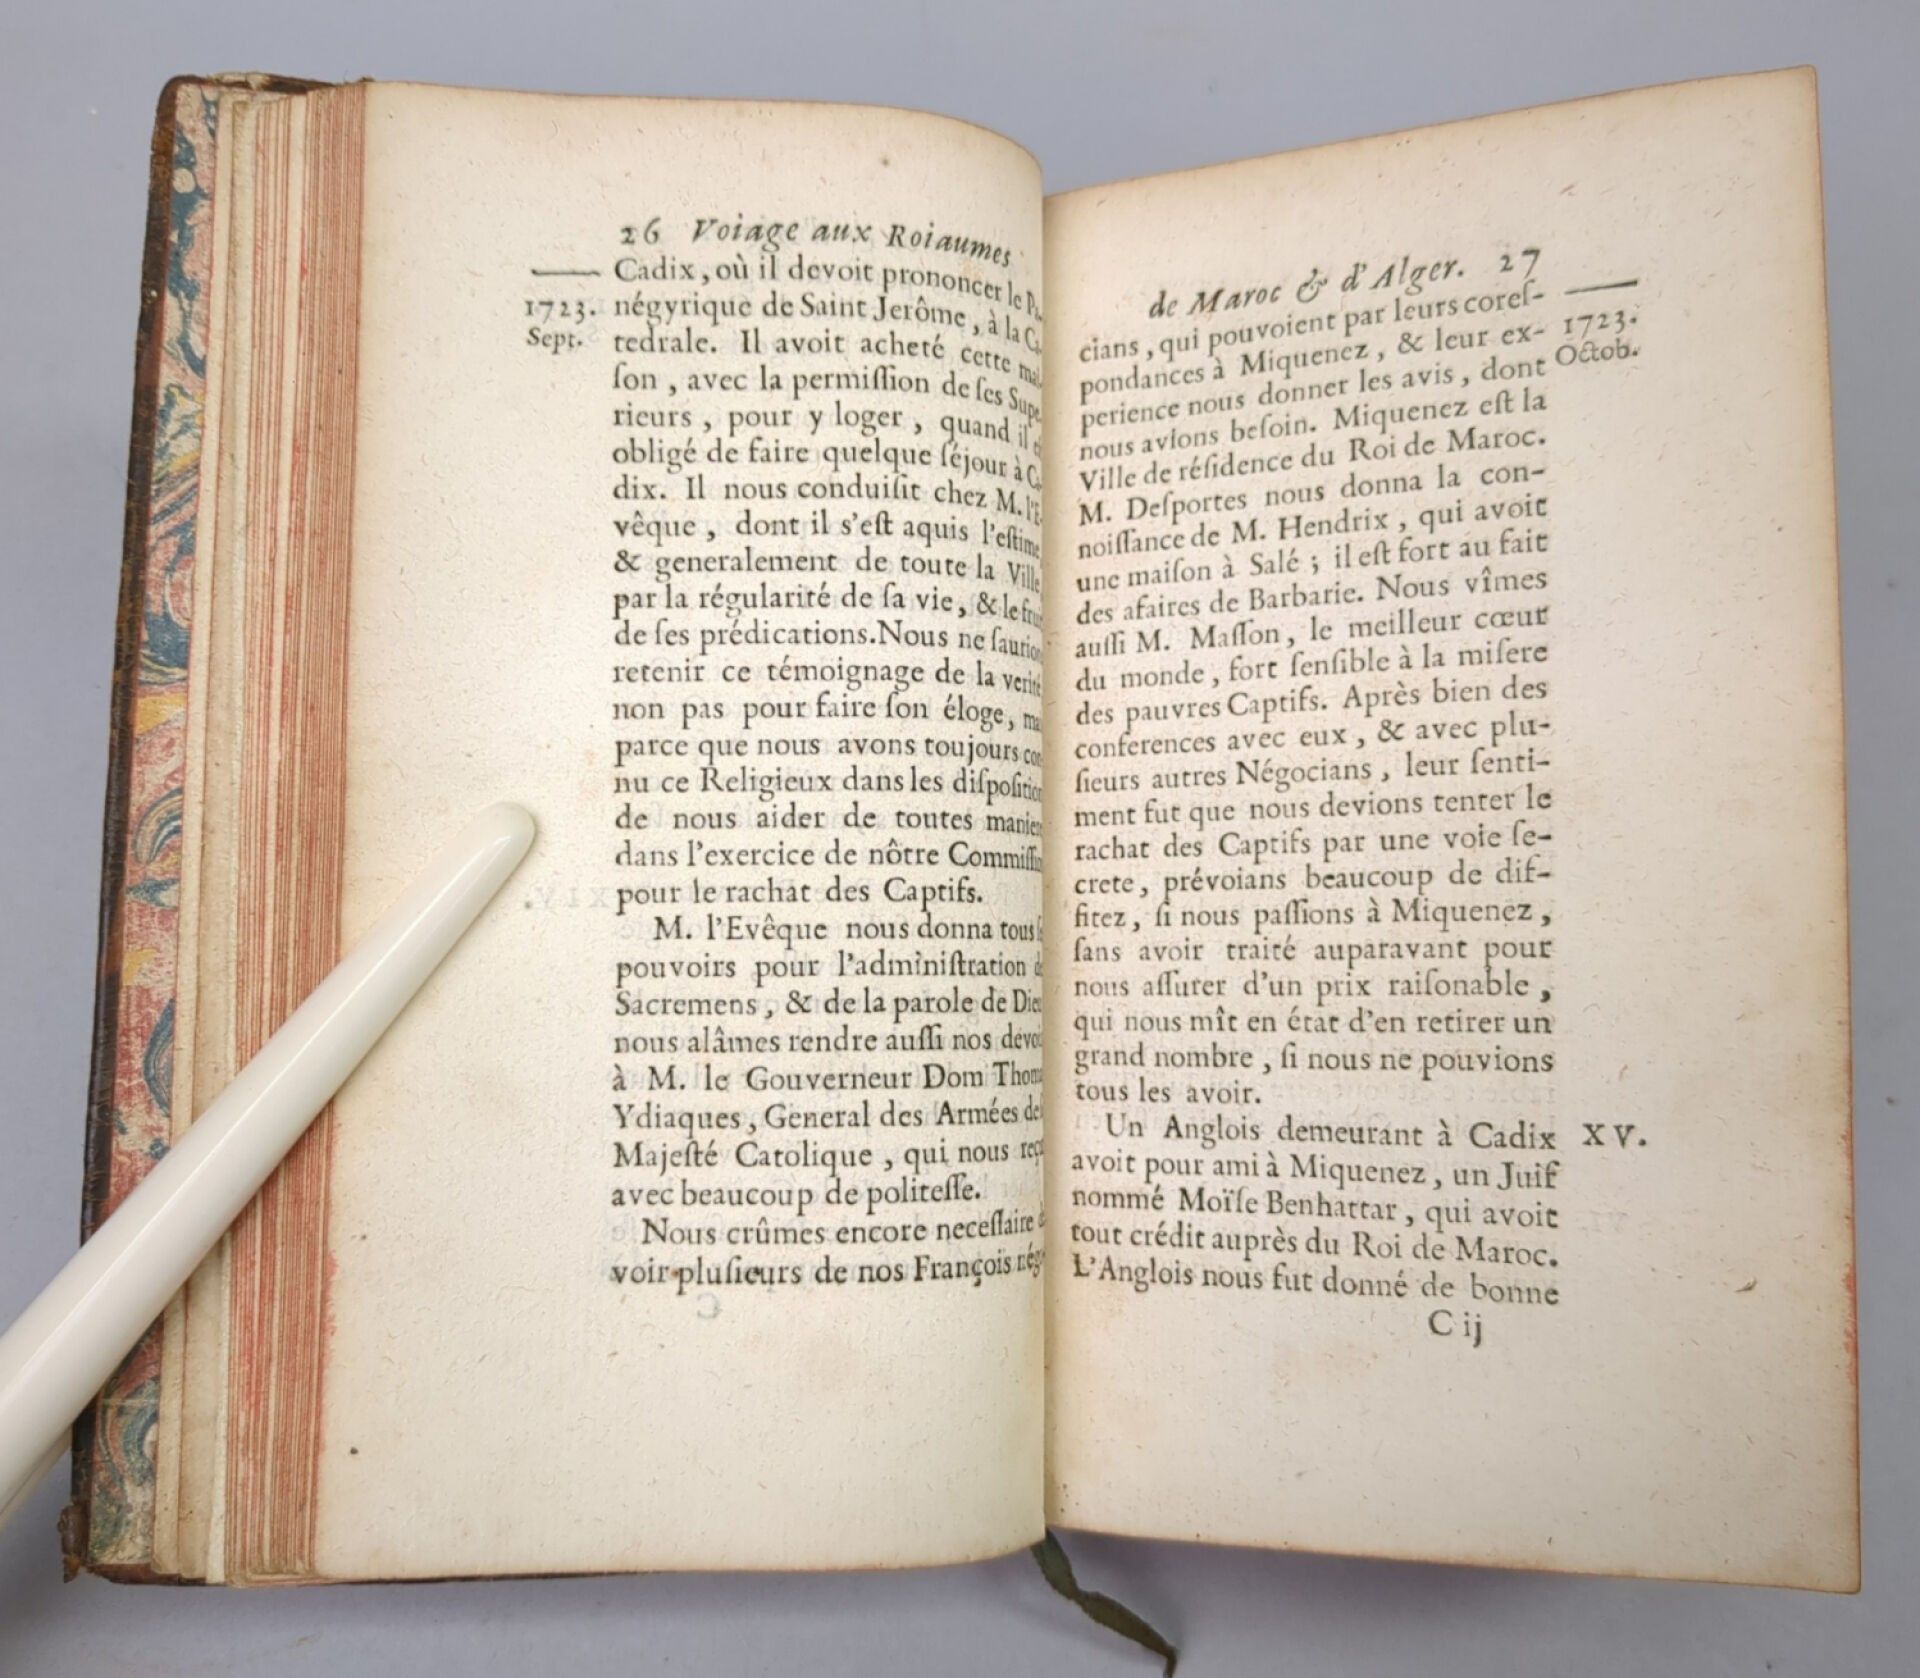 26 Voiage aux Roiaumes
Cadix, où il devoit prononcer le
1723.
Sept.
négyrique de Saint Jerôme, à la
tedrale. Il avoit acheté cette
ſon, avec la permiſſion de ſes
rieurs, pour y loger, quand il
obligé de faire quelque ſéjour à
dix. Il nous conduiſit chez M.
vêque, dont il s'eſt aquis l'eſtime,
& generalement de toute la Ville
par la régularité de ſa vie, & le
de ſes prédications. Nous ne
retenir ce témoignage de la verité
non pas pour faire ſon éloge,
parce que nous avons toujours
nu ce Religieux dans les
de nous aider de toutes
dans l'exercice de nôtre
pour le rachat des Captifs.
M. l'Evêque nous donna tous
pouvoirs pour l'adminiſtration
Sacremens, & de la parole de
nous alâmes rendre auſſi nos
à M. le Gouverneur Dom
Ydiaques, General des Armées
Majeſté Catolique, qui nous
avec beaucoup de politeſſe.
Nous crûmes encore neceſſaire
voir pluſieurs de nos François
de Maroc & d'Alger. 27
1723.
Octob.
cians, qui pouvoient par leurs coreſ-
pondances à Miquenez, & leur ex-
perience nous donner les avis, dont
nous avions beſoin. Miquenez eſt la
Ville de réſidence du Roi de Maroc.
M. Deſportes nous donna la con-
noiſſance de M. Hendrix, qui avoit
une maiſon à Salé ; il eſt fort au fait
des afaires de Barbarie. Nous vîmes
auſſi M. Maſſon, le meilleur cœur
du monde, fort ſenſible à la miſere
des pauvres Captifs. Après bien des
conferences avec eux, & avec plu-
ſieurs autres Négocians, leur ſenti-
ment fut que nous devions tenter le
rachat des Captifs par une voie ſe-
crete, prévoians beaucoup de dif-
fitez, ſi nous paſſions à Miquenez,
ſans avoir traité auparavant pour
nous aſſurer d'un prix raiſonable,
qui nous mît en état d'en retirer un
grand nombre, ſi nous ne pouvions
tous les avoir.
Un Anglois demeurant à Cadix XV.
avoit pour ami à Miquenez, un Juif
nommé Moïſe Benhattar, qui avoit
tout crédit auprès du Roi de Maroc.
L'Anglois nous fut donné de bonne
C ij